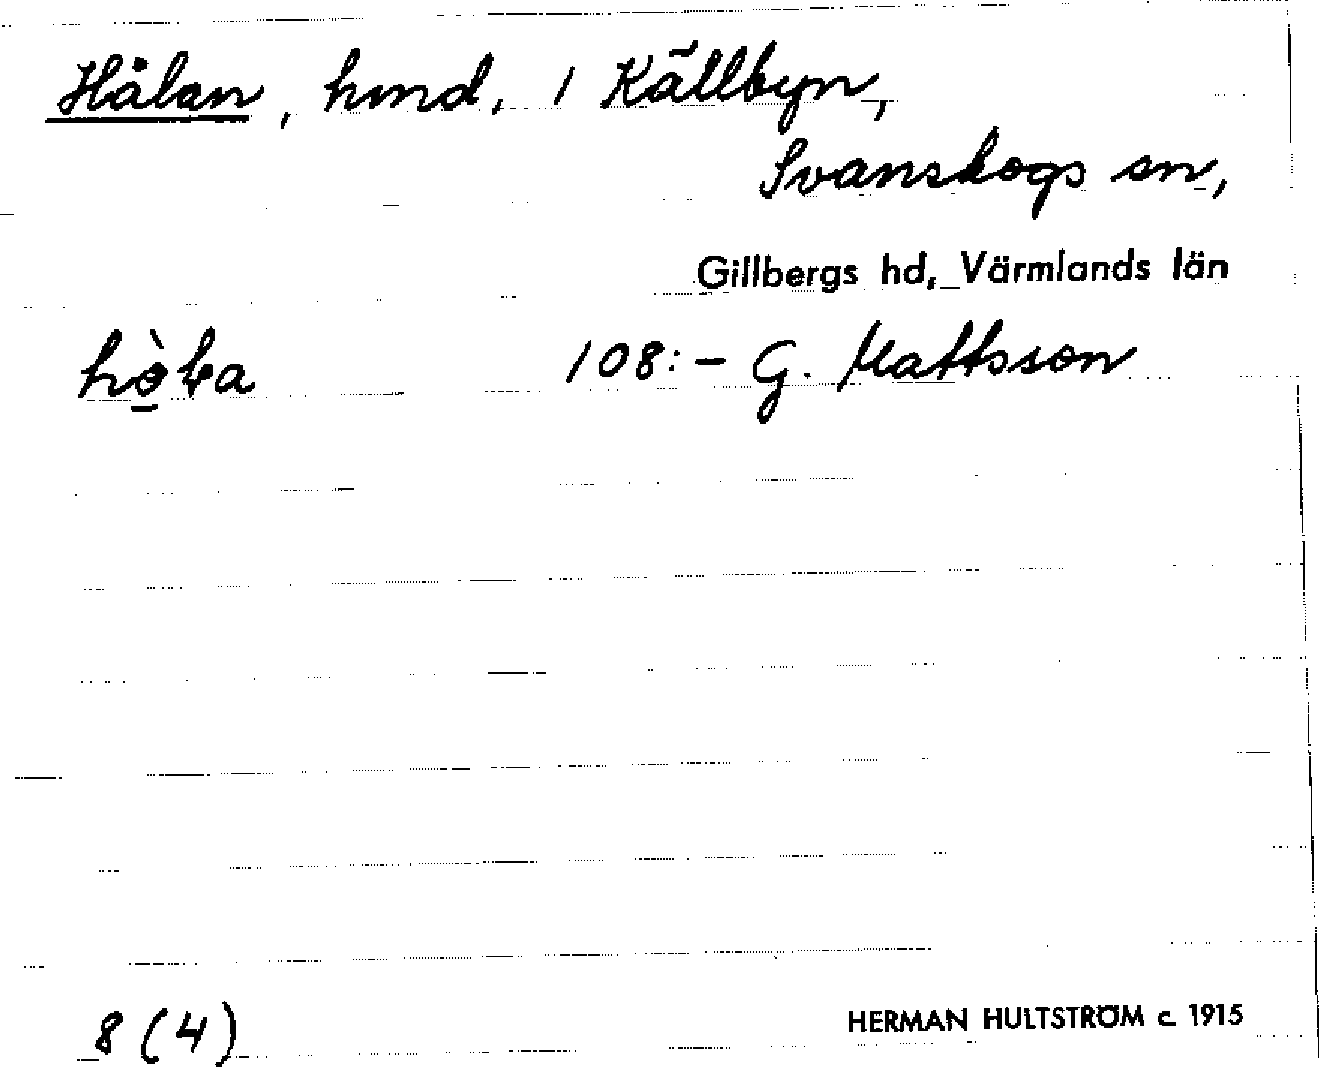 Hålan, hmd, i Källbyn,
Svanskogs sn,
Gillbergs hd, Värmlands län
108:- G. Mattsson
8 (4)
HERMAN HULTSTRÖM c. 1915